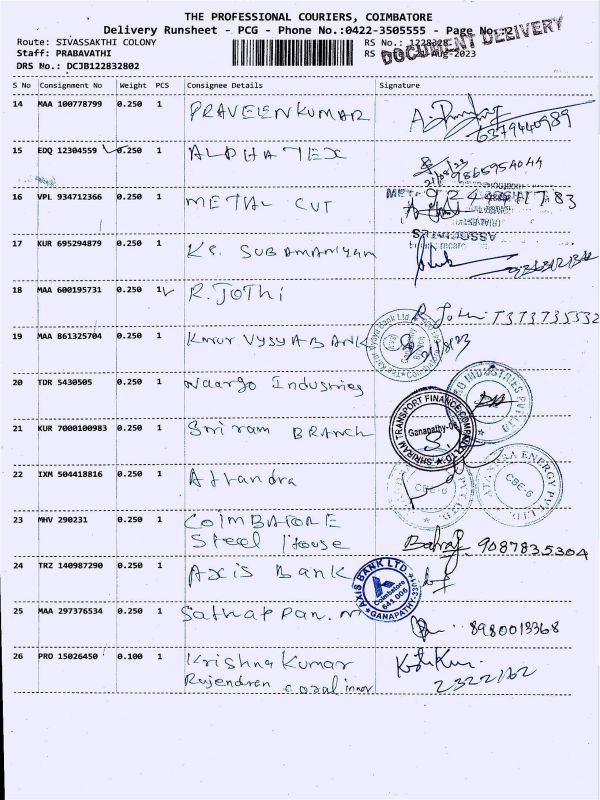 THE PROFESSIONAL COURIERS, COIMBATORE
Delivery Runsheet - PCG - Phone No.:0422-3505555 - Page No.:2
DOCUMENT DELIVERY
Route: SIVASSAKTHI COLONY RS No.: 1228328
Staff: PRABAVATHI RS Aug-2023
DRS No.: DCJB122832802
S No Consignment No Weight PCS Consignee Details Signature
14 MAA 100778799 0.250 1 PRAVELEN KUMAR
6379440989
15 EDQ 12304559 0.250 1 ALPHA TEX
21/08/23 9865954044
16 VPL 934712366 0.250 1 METAL CUT
17 KUR 695294879 0.250 1 KS. SUBAMANIYAM
18 MAA 600195731 0.250 1 R. JOTHI
R Jothi 7373735532
19 MAA 861325704 0.250 1 Karur VYSYA BANK
20 TDR 5430505 0.250 1 Waargo Industries
21 KUR 7000100983 0.250 1 Sriram BRANCH
SHRIRAM TRANSPORT FINANCE COMPANY LTD
Ganapathy-06
22 IXM 504418816 0.250 1 Attandra
ATANDRA ENERGY PVT LTD
CBE-6
CBE-6
23 MHV 290231 0.250 1 COIMBATORE
Steel House
Balraj 9087835304
24 TRZ 140987290 0.250 1 AXIS BANK
AXIS BANK LTD
Coimbatore
641 006
GANAPATHY
25 MAA 297376534 0.250 1 Sathappan. M
8980013368
26 PRO 15026450 0.100 1 Krishna Kumar
Rajendran
2322162